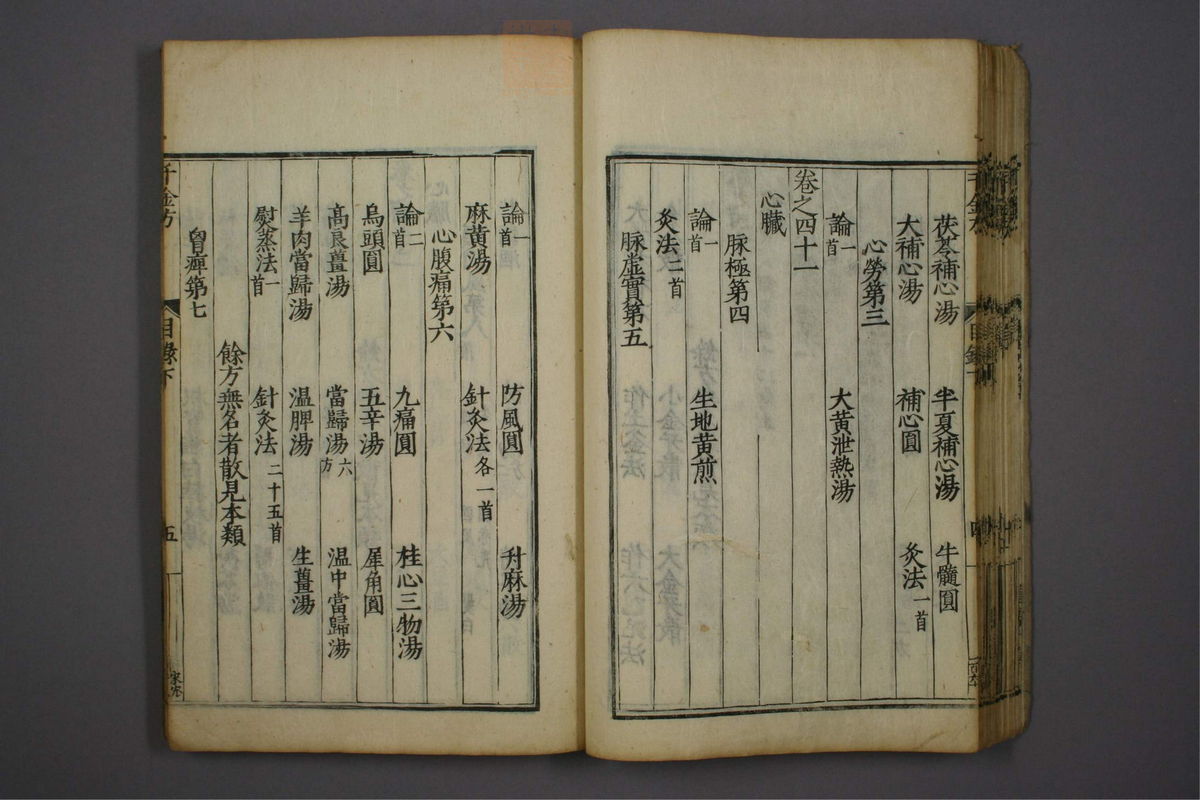 茯苓補心湯 半夏補心湯 牛髓圓
大補心湯 補心圓 灸法一首
心勞第三
論一首 大黃泄熱湯
卷之四十一
心臟
脉極第四
論一首 生地黃煎
灸法二首
脉虛實第五
論一首 防風圓 升麻湯
麻黃湯 針灸法各一首
心腹痛第六
論二首 九痛圓 桂心三物湯
烏頭圓 五辛湯 犀角圓
高良薑湯 當歸湯六方 温中當歸湯
羊肉當歸湯 温脾湯 生薑湯
熨蒸法一首 針灸法二十五首
餘方無名者散見本類
胷痺第七
千金方 目録下 五